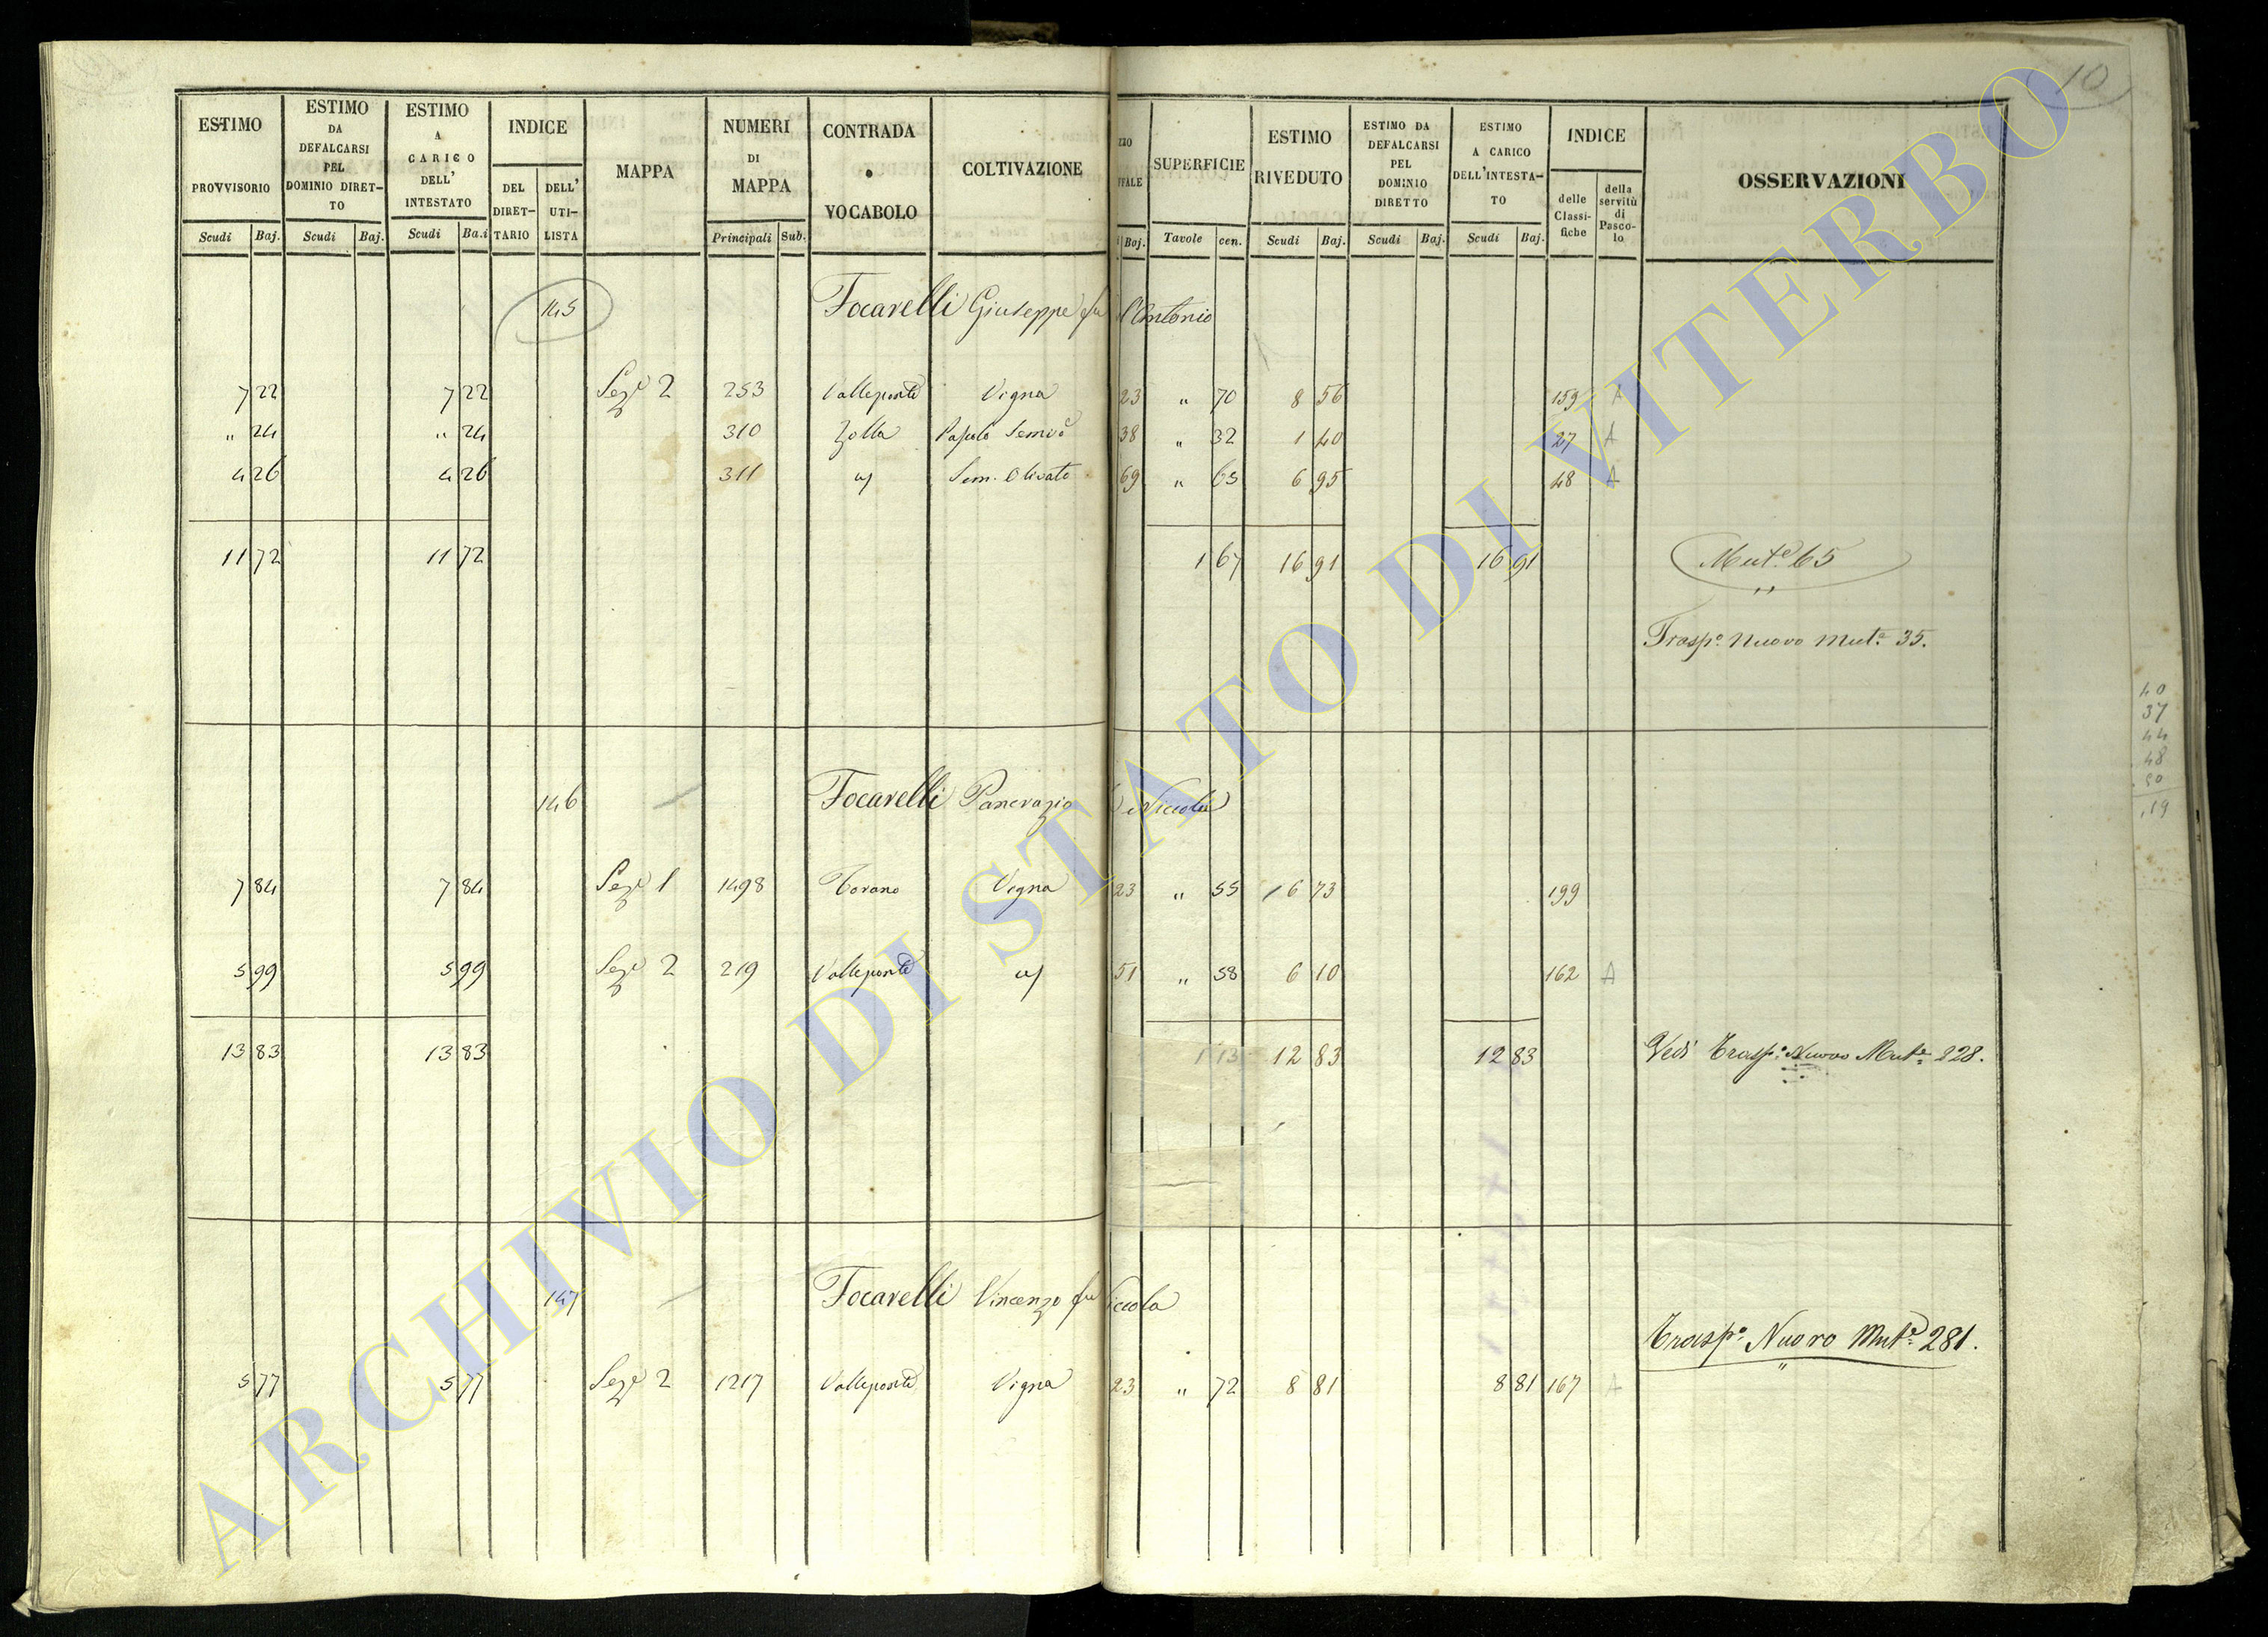 10
ESTIMO PROVVISORIO Scudi Baj.
ESTIMO DA DEFALCARSI PEL DOMINIO DIRET-TO Scudi Baj.
ESTIMO A CARICO DELL' INTESTATO Scudi Ba.i
INDICE DEL DIRET-TARIO DELL' UTI-LISTA
MAPPA
NUMERI DI MAPPA Principali Sub.
CONTRADA o VOCABOLO
COLTIVAZIONE
ZZO FFALE Baj.
SUPERFICIE Tavole cen.
ESTIMO RIVEDUTO Scudi Baj.
ESTIMO DA DEFALCARSI PEL DOMINIO DIRETTO Scudi Baj.
ESTIMO A CARICO DELL'INTESTA-TO Scudi Baj.
INDICE delle Classi-fiche della servitù di Pasco-lo
OSSERVAZIONI
145 Focarelli Giuseppe fu Antonio
7 22 7 22 Sez.e 2 253 Valleponte Vigna 23 " 70 8 56 159 A
" 24 " 24 310 Zolla Pascolo Semivo 38 " 32 1 40 27 A
4 26 4 26 311 Sem. Olivato 69 " 65 6 95 48 A
11 72 11 72 1 67 16 91 16 91 Mut.e 65
Trasp.o Nuovo Mut.e 35.
146 Focarelli Pancrazio di Niccola
7 84 7 84 Sez.e 1 1498 Torano Vigna 23 " 55 6 73 199
5 99 5 99 Sez.e 2 219 Valleponte 51 " 58 6 10 162 A
13 83 13 83 1 13 12 83 12 83 Vedi Trasp.o Nuovo Mut.e 228.
147 Focarelli Vincenzo fu Niccola
Trasp.o Nuovo Mut.e 281.
5 77 5 77 Sez.e 2 1217 Valleponte Vigna 23 " 72 8 81 8 81 167 A
40
37
44
48
50
19
ARCHIVIO DI STATO DI VITERBO